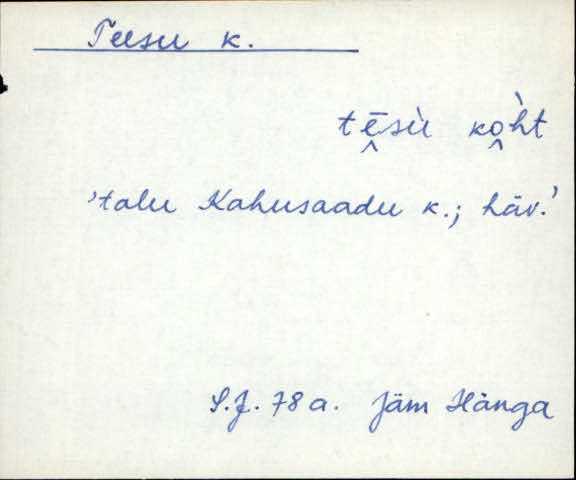 Teesu k.
tē̬sù ko̬h̀t
'talu Kahusaadu k.; häv.'
S.J. 78 a. Jäm Hänga